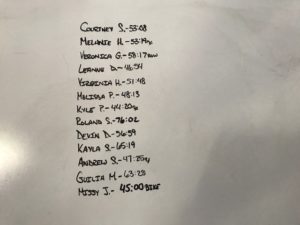 Courtney S.-53:08
Melanie H.-53:19
Veronica G.-58:17
Leanne D.-46:54
Virginia H.-51:48
Melissa P.-48:13
Kyle P.-44:20
Roland S.-76:02
Devin D.-56:59
Kayla S.-65:19
Andrew S.-47:25
Guilia M.-63:23
Missy J.-45:00 BIKE